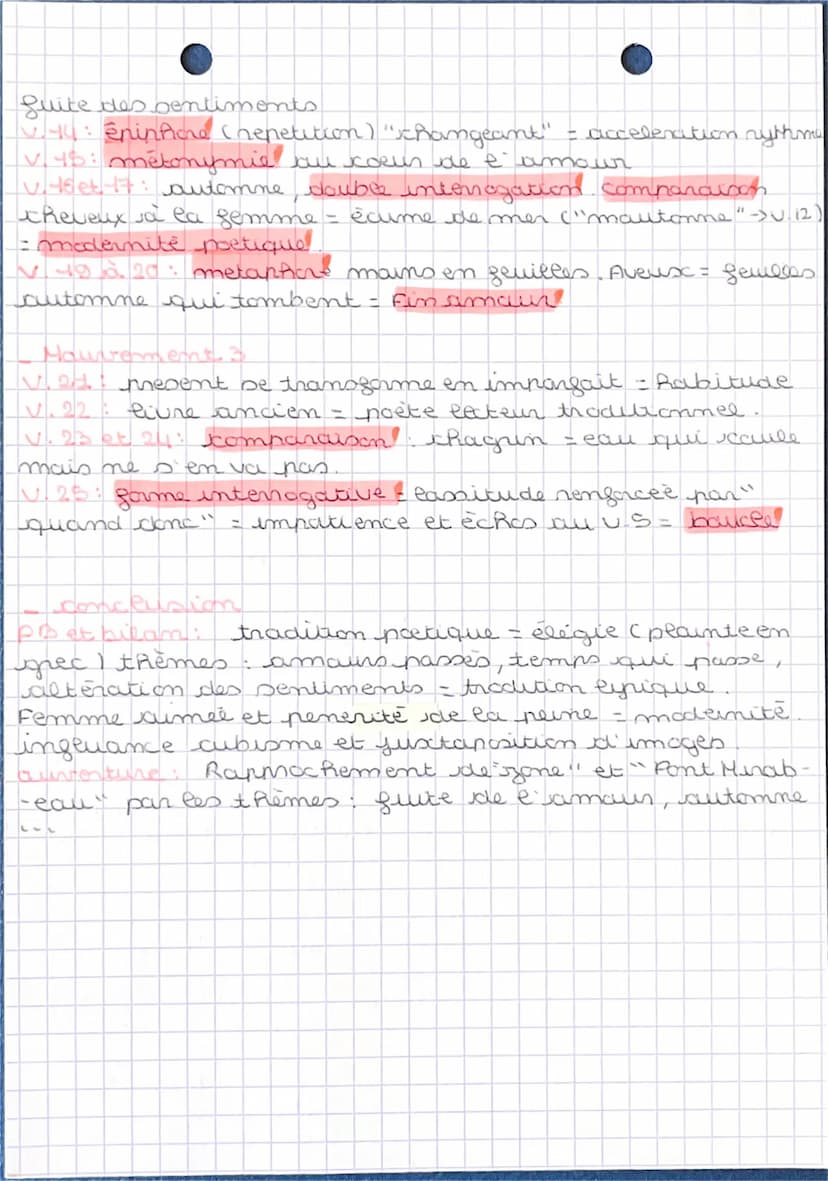 fuite des sentiments
v.14 : épiphore (repetition) "changeant" = acceleration rythme
v.15 : métonymie au coeur de l'amour
v.16 et 17 : automne, double interrogation. comparaison
cheveux à la femme = écume de mer ("mautomne" -> v.12)
= modernité poetique
v.19 à 20 : metaphore mains en feuilles. Aveux = feuilles
automne qui tombent = Fin amour
_ Mouvement 3
v.21 : present se transforme en imparfait = habitude
v.22 : livre ancien = poète lecteur traditionnel.
v.23 et 24 : comparaison : chagrin = eau qui coule
mais ne s'en va pas.
v.25 : forme interrogative = lassitude renforceé par "
quand donc" = impatience et échos au v.5 = boucle
_ conclusion
PB et bilan : tradition poetique = élégie (plainte en
grec) thèmes : amours passés, temps qui passe,
altération des sentiments = tradition lyrique.
Femme aimeé et de la peine = modernité.
influance cubisme et juxtaposition d'images.
ouverture : Rapprochement de "zone" et "Pont Mirab-
-eau" par les thèmes : fuite de l'amour, automne
...